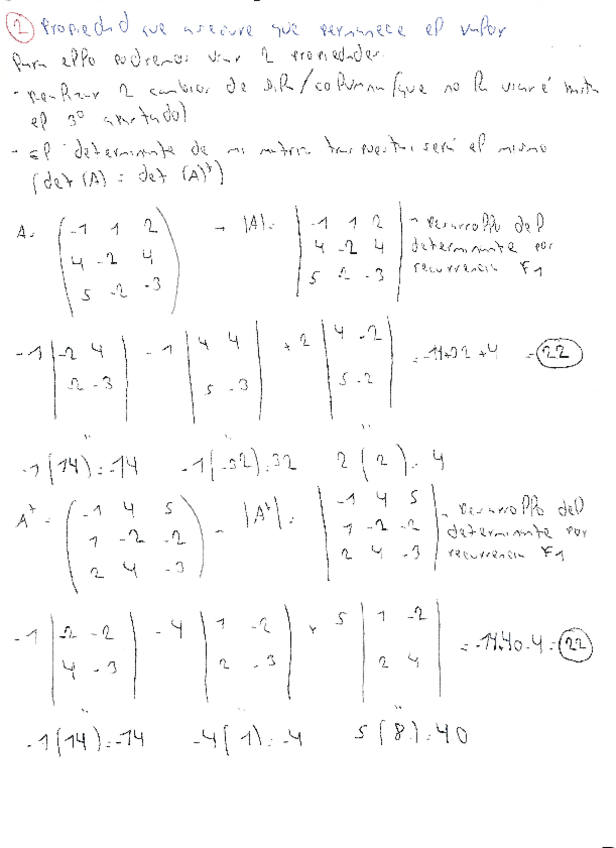 2 Propiedad que asegure que permanece el valor
Para ello podremos usar 2 propiedades.
- Realizar 2 cambios de fila/columna (que no la usaré hasta
el 3º apartado)
- El determinante de mi matriz traspuesta será el mismo
(det (A) = det (A)ᵗ)
A = ( -1 1 2 → |A| = | -1 1 2 | → Desarrollo del
4 -2 4 4 -2 4 determinante por
5 -2 -3 ) 5 -2 -3 | recurrencia F1
-1 | -2 4 | - 1 | 4 4 | + 2 | 4 -2 | = -14+32+4 = 22
-2 -3 5 -3 5 -2
-1(14) = -14 -1(-32) = 32 2(2) = 4
Aᵗ = ( -1 4 5 → |Aᵗ| = | -1 4 5 | → Desarrollo del
1 -2 -2 1 -2 -2 determinante por
2 4 -3 ) 2 4 -3 | recurrencia F1
-1 | -2 -2 | - 4 | 1 -2 | + 5 | 1 -2 | = -14+40-4 = 22
4 -3 2 -3 2 4
-1(14) = -14 -4(1) = -4 5(8) = 40